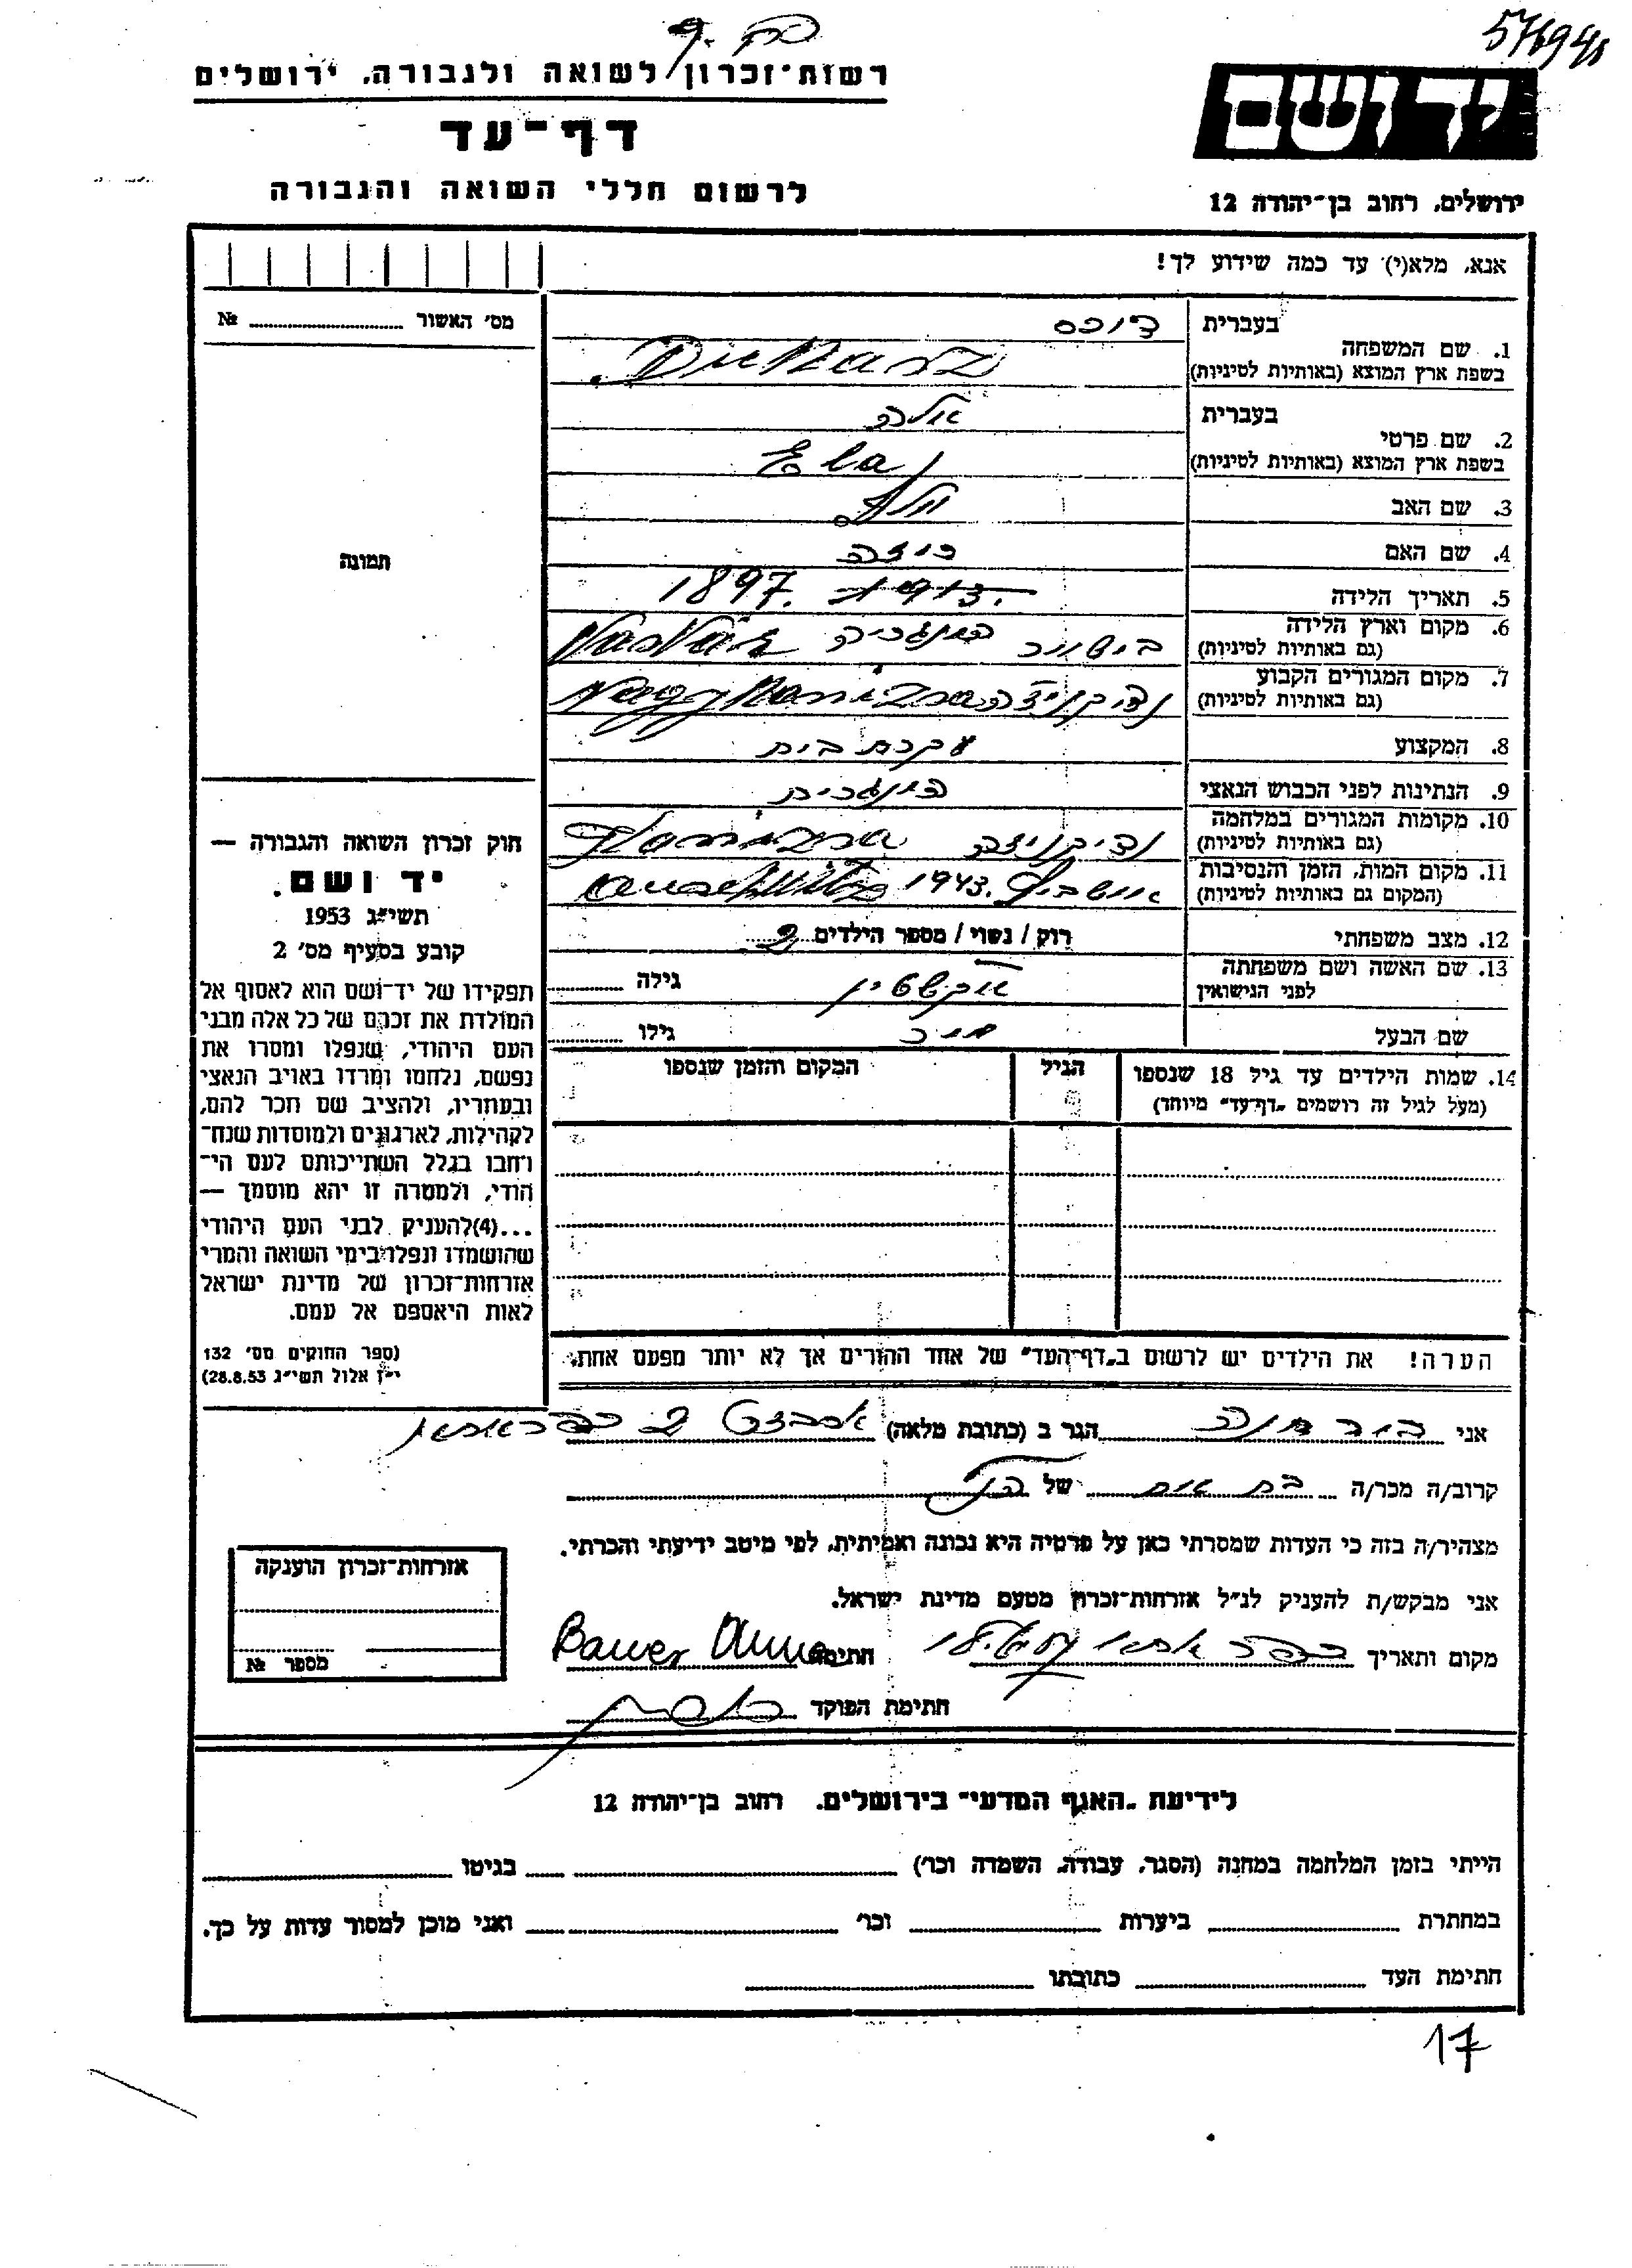 576948
רשות־זכרון לשואה ולגבורה, ירושלים
דף־עד
לרשום חללי השואה והגבורה
יד ושם
ירושלים, רחוב בן־יהודה 12
אנא, מלא(י) עד כמה שידוע לך!
מס׳ האשור № 
בעברית
1. שם המשפחה
בשפת ארץ המוצא (באותיות לטיניות)
בעברית אלה
2. שם פרטי
בשפת ארץ המוצא (באותיות לטיניות) Ela
3. שם האב
4. שם האם
5. תאריך הלידה 1913. 1897.
6. מקום וארץ הלידה
(גם באותיות לטיניות) הונגריה
7. מקום המגורים הקבוע
(גם באותיות לטיניות) Nagykanizsa
8. המקצוע עקרת בית
9. הנתינות לפני הכבוש הנאצי הונגרית
10. מקומות המגורים במלחמה
(גם באותיות לטיניות) Kanizsa
11. מקום המות, הזמן והנסיבות
(המקום גם באותיות לטיניות) אושביץ 1943. Auschwitz
12. מצב משפחתי רוק / נשוי / מספר הילדים 2
13. שם האשה ושם משפחתה
לפני הנישואין גילה
שם הבעל גילו
14. שמות הילדים עד גיל 18 שנספו הגיל המקום והזמן שנספו
(מעל לגיל זה רושמים „דף־עד” מיוחד)
הערה! את הילדים יש לרשום ב„דף־העד” של אחד ההורים אך לא יותר מפעם אחת.
תמונה
חוק זכרון השואה והגבורה —
יד ושם.
תשי״ג 1953
קובע בסעיף מס׳ 2
תפקידו של יד־ושם הוא לאסוף אל
המולדת את זכרם של כל אלה מבני
העם היהודי, שנפלו ומסרו את
נפשם, נלחמו ומרדו באויב הנאצי
ובעוזריו, ולהציב שם וזכר להם,
לקהילות, לארגונים ולמוסדות שנח־
רחבו בגלל השתייכותם לעם הי־
הודי, ולמטרה זו יהא מוסמך —
...(4)להעניק לבני העם היהודי
שהושמדו ונפלו בימי השואה והמרי
אזרחות־זכרון של מדינת ישראל
לאות היאספם אל עמם.
(ספר החוקים מס׳ 132
י״ז אלול תשי״ג 28.8.53)
אני חנה הגר ב (כתובת מלאה)
קרוב/ה מכר/ה בת אות של הנ״ל
מצהיר/ה בזה כי העדות שמסרתי כאן על פרטיה היא נכונה ואמיתית, לפי מיטב ידיעתי והכרתי.
אני מבקש/ת להעניק לנ״ל אזרחות־זכרון מטעם מדינת ישראל.
מקום ותאריך חתימה Bauer Anna
חתימת הפוקד
אזרחות־זכרון הוענקה
מספר №
לידיעת „האגף המדעי” בירושלים, רחוב בן־יהודה 12
הייתי בזמן המלחמה במחנה (הסגר, עבודה, השמדה וכו׳) בגיטו
במחתרת ביערות וכו׳ ואני מוכן למסור עדות על כך.
חתימת העד כתובתו
17